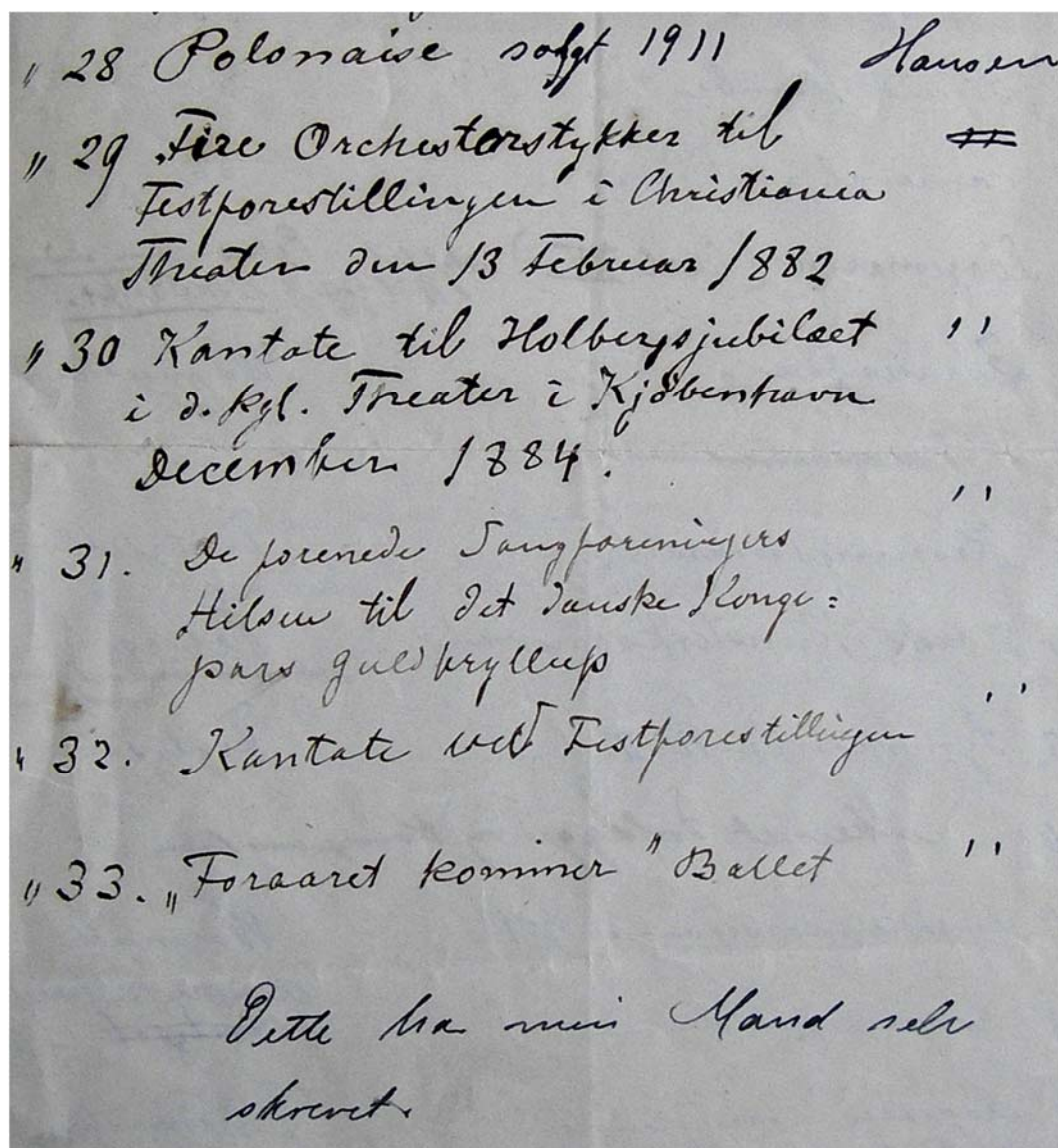 " 28 Polonaise solgt 1911 Hansen
" 29 Fire Orchesterstykker til
Festforestillingen i Christiania
Theater den 13 Februar 1882
" 30 Kantate til Holbergsjubilæet "
i d. kgl. Theater i Kjøbenhavn
December 1884.
"
" 31. De forenede Sangforeningers
Hilsen til det danske Konge=
pars guldbryllup
"
" 32. Kantate ved Festforestillingen
" 33. „Foraaret kommer" Ballet "
Dette ha min Mand selv
skrevet.